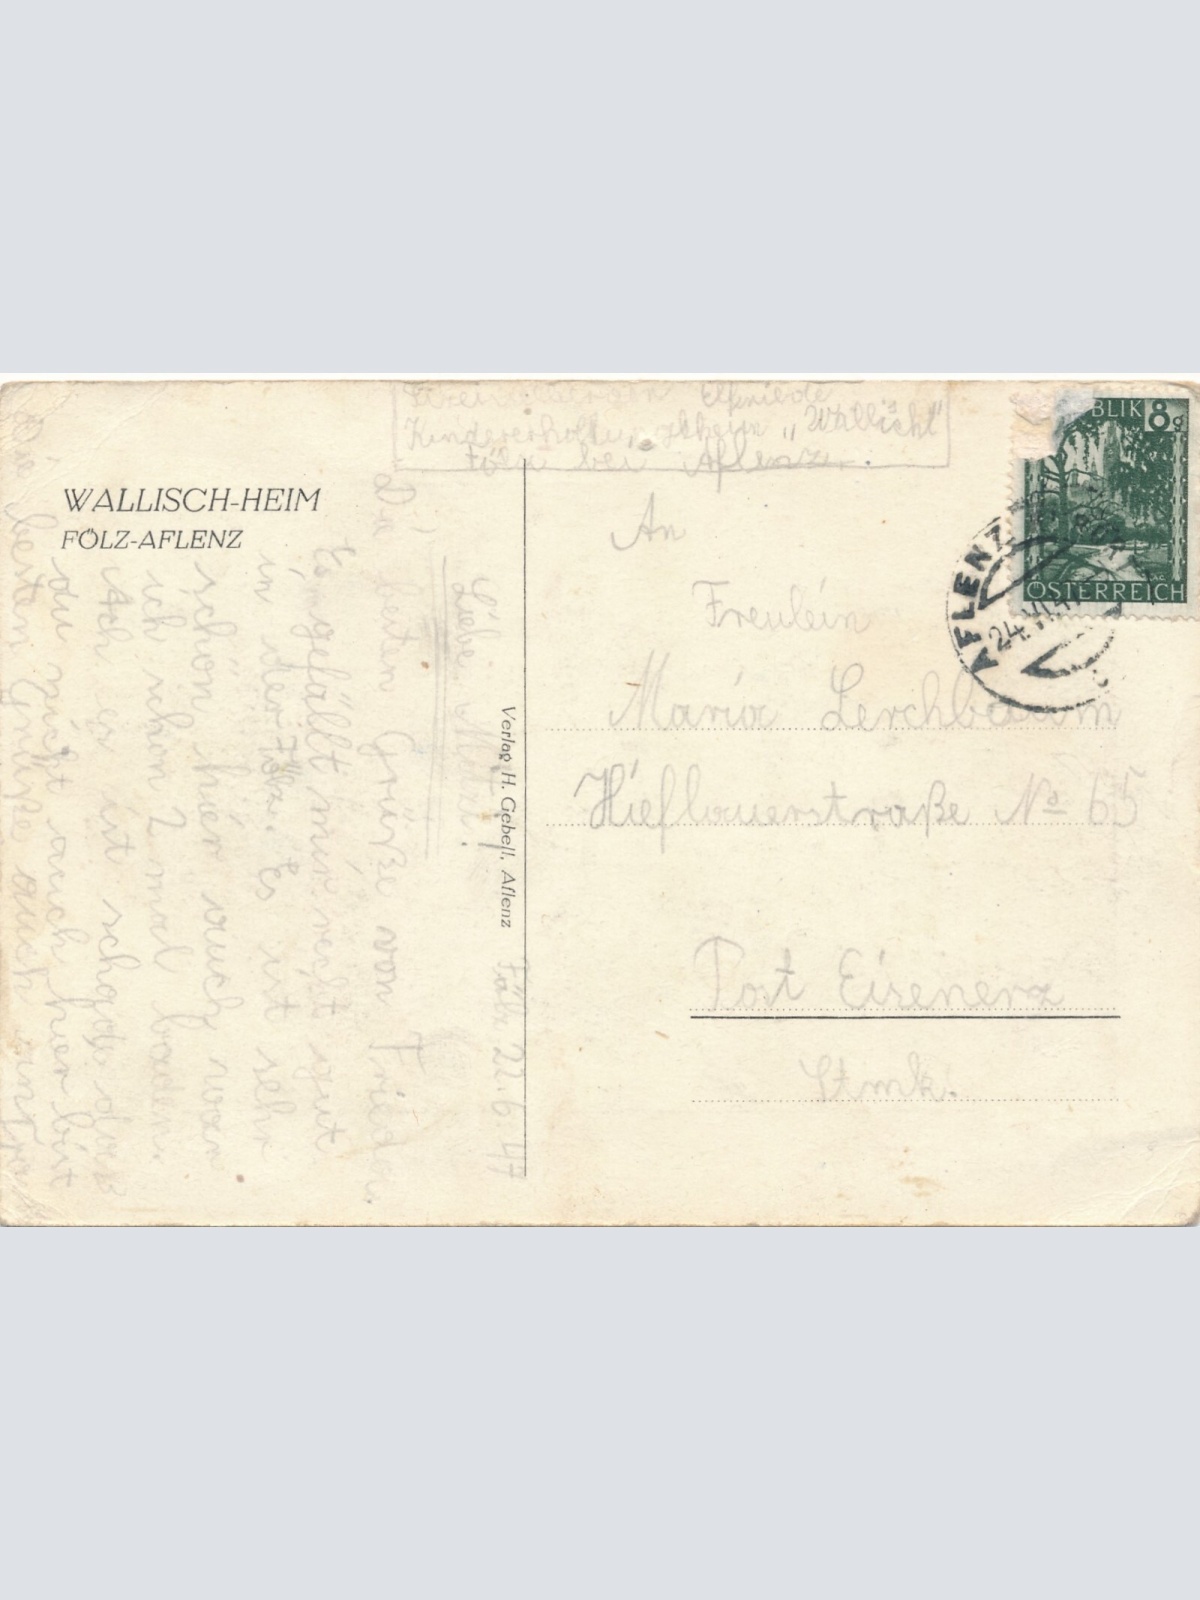 Elfriede
Kindererholungsheim „Wallisch"
Fölz bei Aflenz.
WALLISCH-HEIM
FÖLZ-AFLENZ
BLIK 8g
ÖSTERREICH
AFLENZ
24.VI.47
An
Freulein
Maria Lerchbaum
Hieflauerstraße No 65
Post Eisenerz
Stmk.
Verlag H. Gebell, Aflenz
Fölz 22.6.47
Liebe
Die besten Grüße von Frieda.
Es gefällt mir recht gut
in der Fölz. Es ist sehr
schön hier auch war
ich schon 2 mal baden.
Ach es ist schade das
du nicht auch hier bist
Die besten Grüße auch an